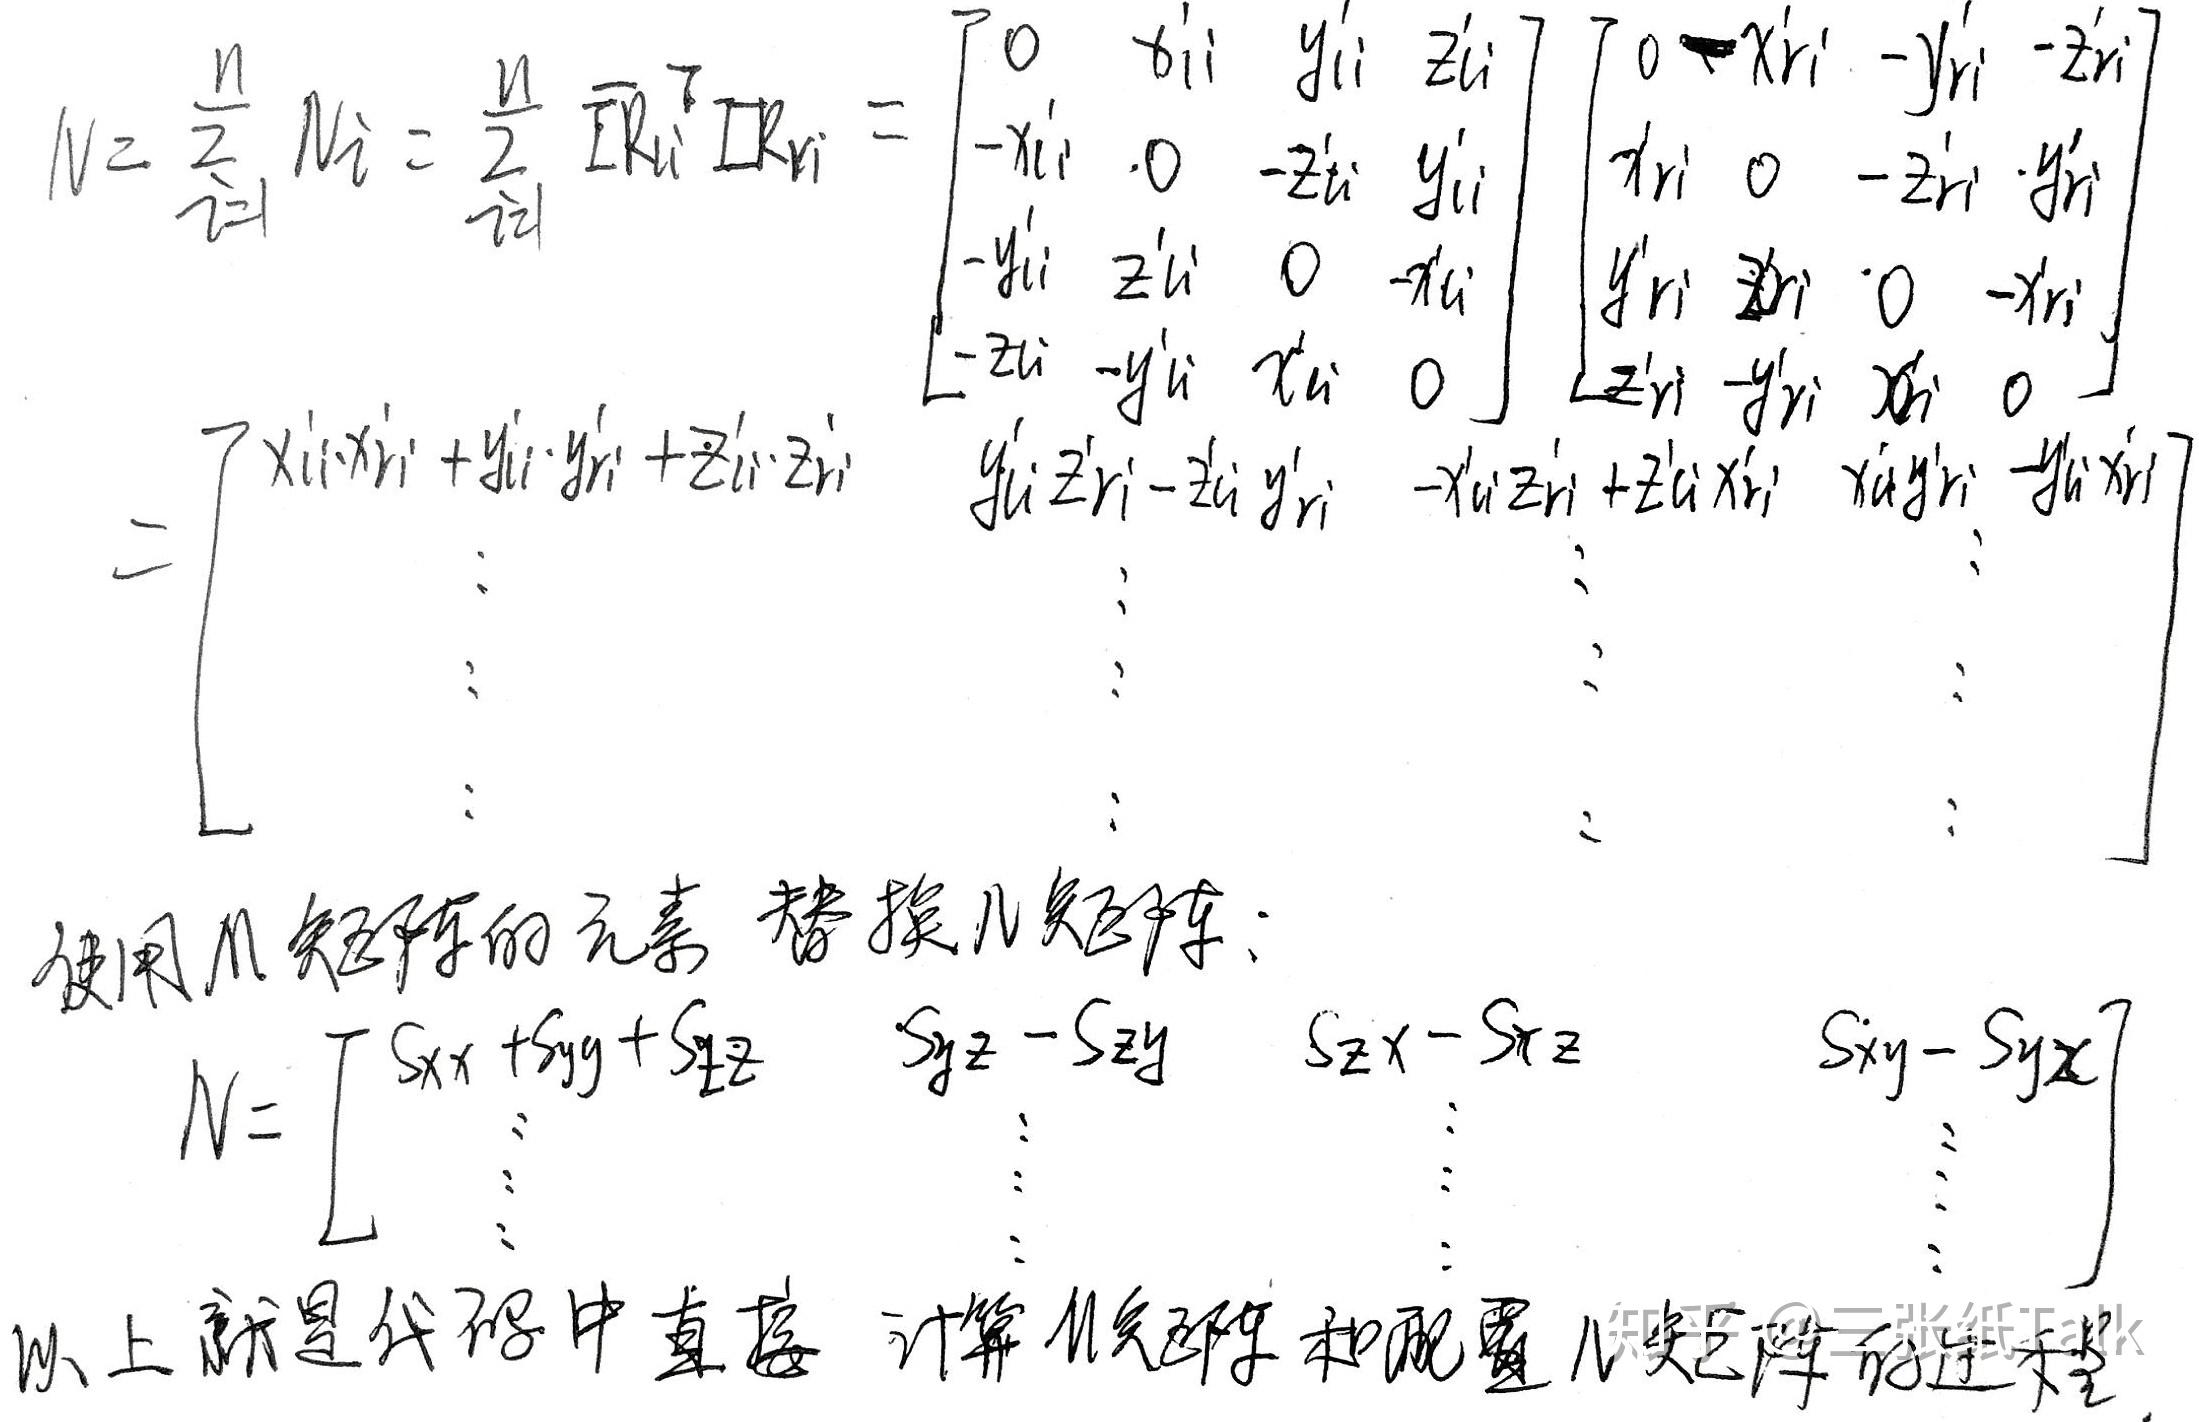 N = \sum_{i=1}^{n} N_i = \sum_{i=1}^{n} \overline{IR}_{li}^T IR_{ri} = \begin{bmatrix} 0 & x'_{li} & y'_{li} & z'_{li} \\ -x'_{li} & 0 & -z'_{li} & y'_{li} \\ -y'_{li} & z'_{li} & 0 & -x'_{li} \\ -z_{li} & -y'_{li} & x'_{li} & 0 \end{bmatrix} \begin{bmatrix} 0 & -x'_{ri} & -y'_{ri} & -z'_{ri} \\ x'_{ri} & 0 & -z'_{ri} & y'_{ri} \\ y'_{ri} & z'_{ri} & 0 & -x'_{ri} \\ z'_{ri} & -y'_{ri} & x'_{ri} & 0 \end{bmatrix}
= \begin{bmatrix} x'_{li} \cdot x'_{ri} + y'_{li} \cdot y'_{ri} + z'_{li} \cdot z'_{ri} & y'_{li} z'_{ri} - z'_{li} y'_{ri} & -x'_{li} z'_{ri} + z'_{li} x'_{ri} & x'_{li} y'_{ri} - y'_{li} x'_{ri} \\ \vdots & \vdots & \vdots & \vdots \\ \vdots & \vdots & \vdots & \vdots \\ \vdots & \vdots & \vdots & \vdots \end{bmatrix}
使用M矩阵的元素 替换N矩阵:
N = \begin{bmatrix} S_{xx} + S_{yy} + S_{zz} & S_{yz} - S_{zy} & S_{zx} - S_{xz} & S_{xy} - S_{yx} \\ \vdots & \vdots & \vdots & \vdots \\ \vdots & \vdots & \vdots & \vdots \\ \vdots & \vdots & \vdots & \vdots \end{bmatrix}
以上就是代码中直接 计算M矩阵和配置N矩阵的过程.
知乎 @三张纸Talk